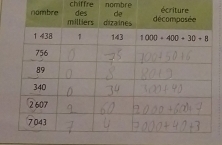 nombre chiffre des milliers nombre de dizaines écriture décomposée
1 438 1 143 1 000 + 400 + 30 + 8
756 0 75 700+50+6
89 0 8 80+9
340 0 34 300+40
2 607 60
7 043 7 4 7000+40+3